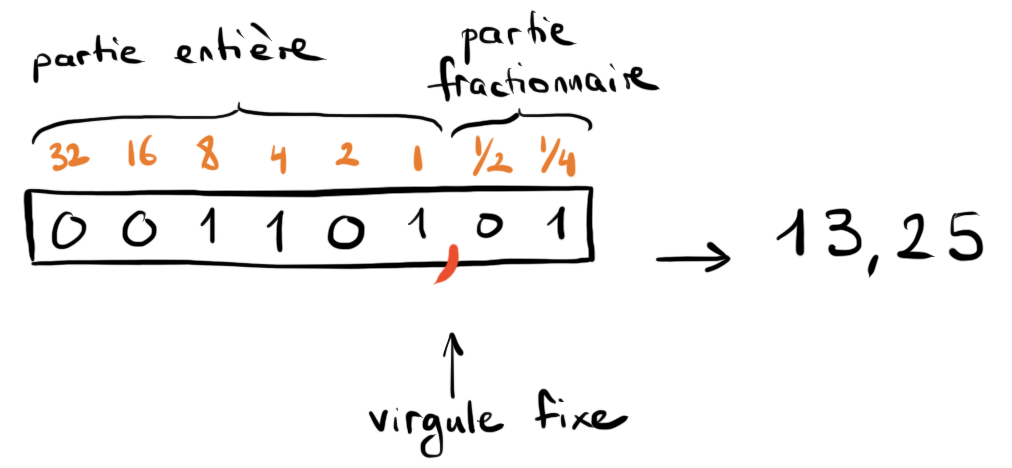 partie entière
partie
fractionnaire
32 16 8 4 2 1 1/2 1/4
0 0 1 1 0 1 , 0 1 → 13,25
virgule fixe